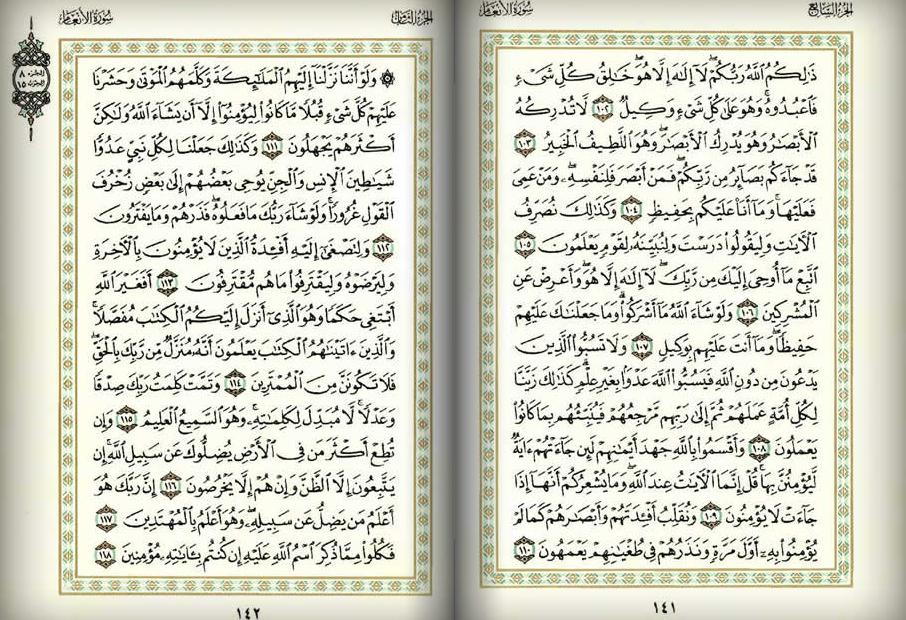 الجزء السابع
سورة الأنعام
ذَٰلِكُمُ ٱللَّهُ رَبُّكُمْ ۖ لَآ إِلَٰهَ إِلَّا هُوَ ۖ خَٰلِقُ كُلِّ شَىْءٍ
فَٱعْبُدُوهُ ۚ وَهُوَ عَلَىٰ كُلِّ شَىْءٍ وَكِيلٌ ١٠٢ لَّا تُدْرِكُهُ
ٱلْأَبْصَٰرُ وَهُوَ يُدْرِكُ ٱلْأَبْصَٰرَ ۖ وَهُوَ ٱللَّطِيفُ ٱلْخَبِيرُ ١٠٣
قَدْ جَآءَكُم بَصَآئِرُ مِن رَّبِّكُمْ ۖ فَمَنْ أَبْصَرَ فَلِنَفْسِهِۦ ۖ وَمَنْ عَمِىَ
فَعَلَيْهَا ۚ وَمَآ أَنَا۠ عَلَيْكُم بِحَفِيظٍ ١٠٤ وَكَذَٰلِكَ نُصَرِّفُ
ٱلْءَايَٰتِ وَلِيَقُولُوا۟ دَرَسْتَ وَلِنُبَيِّنَهُۥ لِقَوْمٍ يَعْلَمُونَ ١٠٥
ٱتَّبِعْ مَآ أُوحِىَ إِلَيْكَ مِن رَّبِّكَ ۖ لَآ إِلَٰهَ إِلَّا هُوَ ۖ وَأَعْرِضْ عَنِ
ٱلْمُشْرِكِينَ ١٠٦ وَلَوْ شَآءَ ٱللَّهُ مَآ أَشْرَكُوا۟ ۗ وَمَا جَعَلْنَٰكَ عَلَيْهِمْ
حَفِيظًا ۖ وَمَآ أَنتَ عَلَيْهِم بِوَكِيلٍ ١٠٧ وَلَا تَسُبُّوا۟ ٱلَّذِينَ
يَدْعُونَ مِن دُونِ ٱللَّهِ فَيَسُبُّوا۟ ٱللَّهَ عَدْوًۢا بِغَيْرِ عِلْمٍ ۗ كَذَٰلِكَ زَيَّنَّا
لِكُلِّ أُمَّةٍ عَمَلَهُمْ ثُمَّ إِلَىٰ رَبِّهِم مَّرْجِعُهُمْ فَيُنَبِّئُهُم بِمَا كَانُوا۟
يَعْمَلُونَ ١٠٨ وَأَقْسَمُوا۟ بِٱللَّهِ جَهْدَ أَيْمَٰنِهِمْ لَئِن جَآءَتْهُمْ ءَايَةٌ
لَّيُؤْمِنُنَّ بِهَا ۚ قُلْ إِنَّمَا ٱلْءَايَٰتُ عِندَ ٱللَّهِ ۖ وَمَا يُشْعِرُكُمْ أَنَّهَآ إِذَا
جَآءَتْ لَا يُؤْمِنُونَ ١٠٩ وَنُقَلِّبُ أَفْـِٔدَتَهُمْ وَأَبْصَٰرَهُمْ كَمَا لَمْ
يُؤْمِنُوا۟ بِهِۦٓ أَوَّلَ مَرَّةٍ وَنَذَرُهُمْ فِى طُغْيَٰنِهِمْ يَعْمَهُونَ ١١٠
١٤١
الجزء الثامن
سورة الأنعام
الجزء ٨
الحزب ١٥
۞ وَلَوْ أَنَّنَا نَزَّلْنَآ إِلَيْهِمُ ٱلْمَلَٰٓئِكَةَ وَكَلَّمَهُمُ ٱلْمَوْتَىٰ وَحَشَرْنَا
عَلَيْهِمْ كُلَّ شَىْءٍ قُبُلًا مَّا كَانُوا۟ لِيُؤْمِنُوٓا۟ إِلَّآ أَن يَشَآءَ ٱللَّهُ وَلَٰكِنَّ
أَكْثَرَهُمْ يَجْهَلُونَ ١١١ وَكَذَٰلِكَ جَعَلْنَا لِكُلِّ نَبِىٍّ عَدُوًّا
شَيَٰطِينَ ٱلْإِنسِ وَٱلْجِنِّ يُوحِى بَعْضُهُمْ إِلَىٰ بَعْضٍ زُخْرُفَ
ٱلْقَوْلِ غُرُورًا ۚ وَلَوْ شَآءَ رَبُّكَ مَا فَعَلُوهُ ۖ فَذَرْهُمْ وَمَا يَفْتَرُونَ
١١٢ وَلِتَصْغَىٰٓ إِلَيْهِ أَفْـِٔدَةُ ٱلَّذِينَ لَا يُؤْمِنُونَ بِٱلْءَاخِرَةِ
وَلِيَرْضَوْهُ وَلِيَقْتَرِفُوا۟ مَا هُم مُّقْتَرِفُونَ ١١٣ أَفَغَيْرَ ٱللَّهِ
أَبْتَغِى حَكَمًا وَهُوَ ٱلَّذِىٓ أَنزَلَ إِلَيْكُمُ ٱلْكِتَٰبَ مُفَصَّلًا ۚ
وَٱلَّذِينَ ءَاتَيْنَٰهُمُ ٱلْكِتَٰبَ يَعْلَمُونَ أَنَّهُۥ مُنَزَّلٌ مِّن رَّبِّكَ بِٱلْحَقِّ ۖ
فَلَا تَكُونَنَّ مِنَ ٱلْمُمْتَرِينَ ١١٤ وَتَمَّتْ كَلِمَتُ رَبِّكَ صِدْقًا
وَعَدْلًا ۚ لَّا مُبَدِّلَ لِكَلِمَٰتِهِۦ ۚ وَهُوَ ٱلسَّمِيعُ ٱلْعَلِيمُ ١١٥ وَإِن
تُطِعْ أَكْثَرَ مَن فِى ٱلْأَرْضِ يُضِلُّوكَ عَن سَبِيلِ ٱللَّهِ ۚ إِن
يَتَّبِعُونَ إِلَّا ٱلظَّنَّ وَإِنْ هُمْ إِلَّا يَخْرُصُونَ ١١٦ إِنَّ رَبَّكَ هُوَ
أَعْلَمُ مَن يَضِلُّ عَن سَبِيلِهِۦ ۖ وَهُوَ أَعْلَمُ بِٱلْمُهْتَدِينَ ١١٧
فَكُلُوا۟ مِمَّا ذُكِرَ ٱسْمُ ٱللَّهِ عَلَيْهِ إِن كُنتُم بِـَٔايَٰتِهِۦ مُؤْمِنِينَ ١١٨
١٤٢